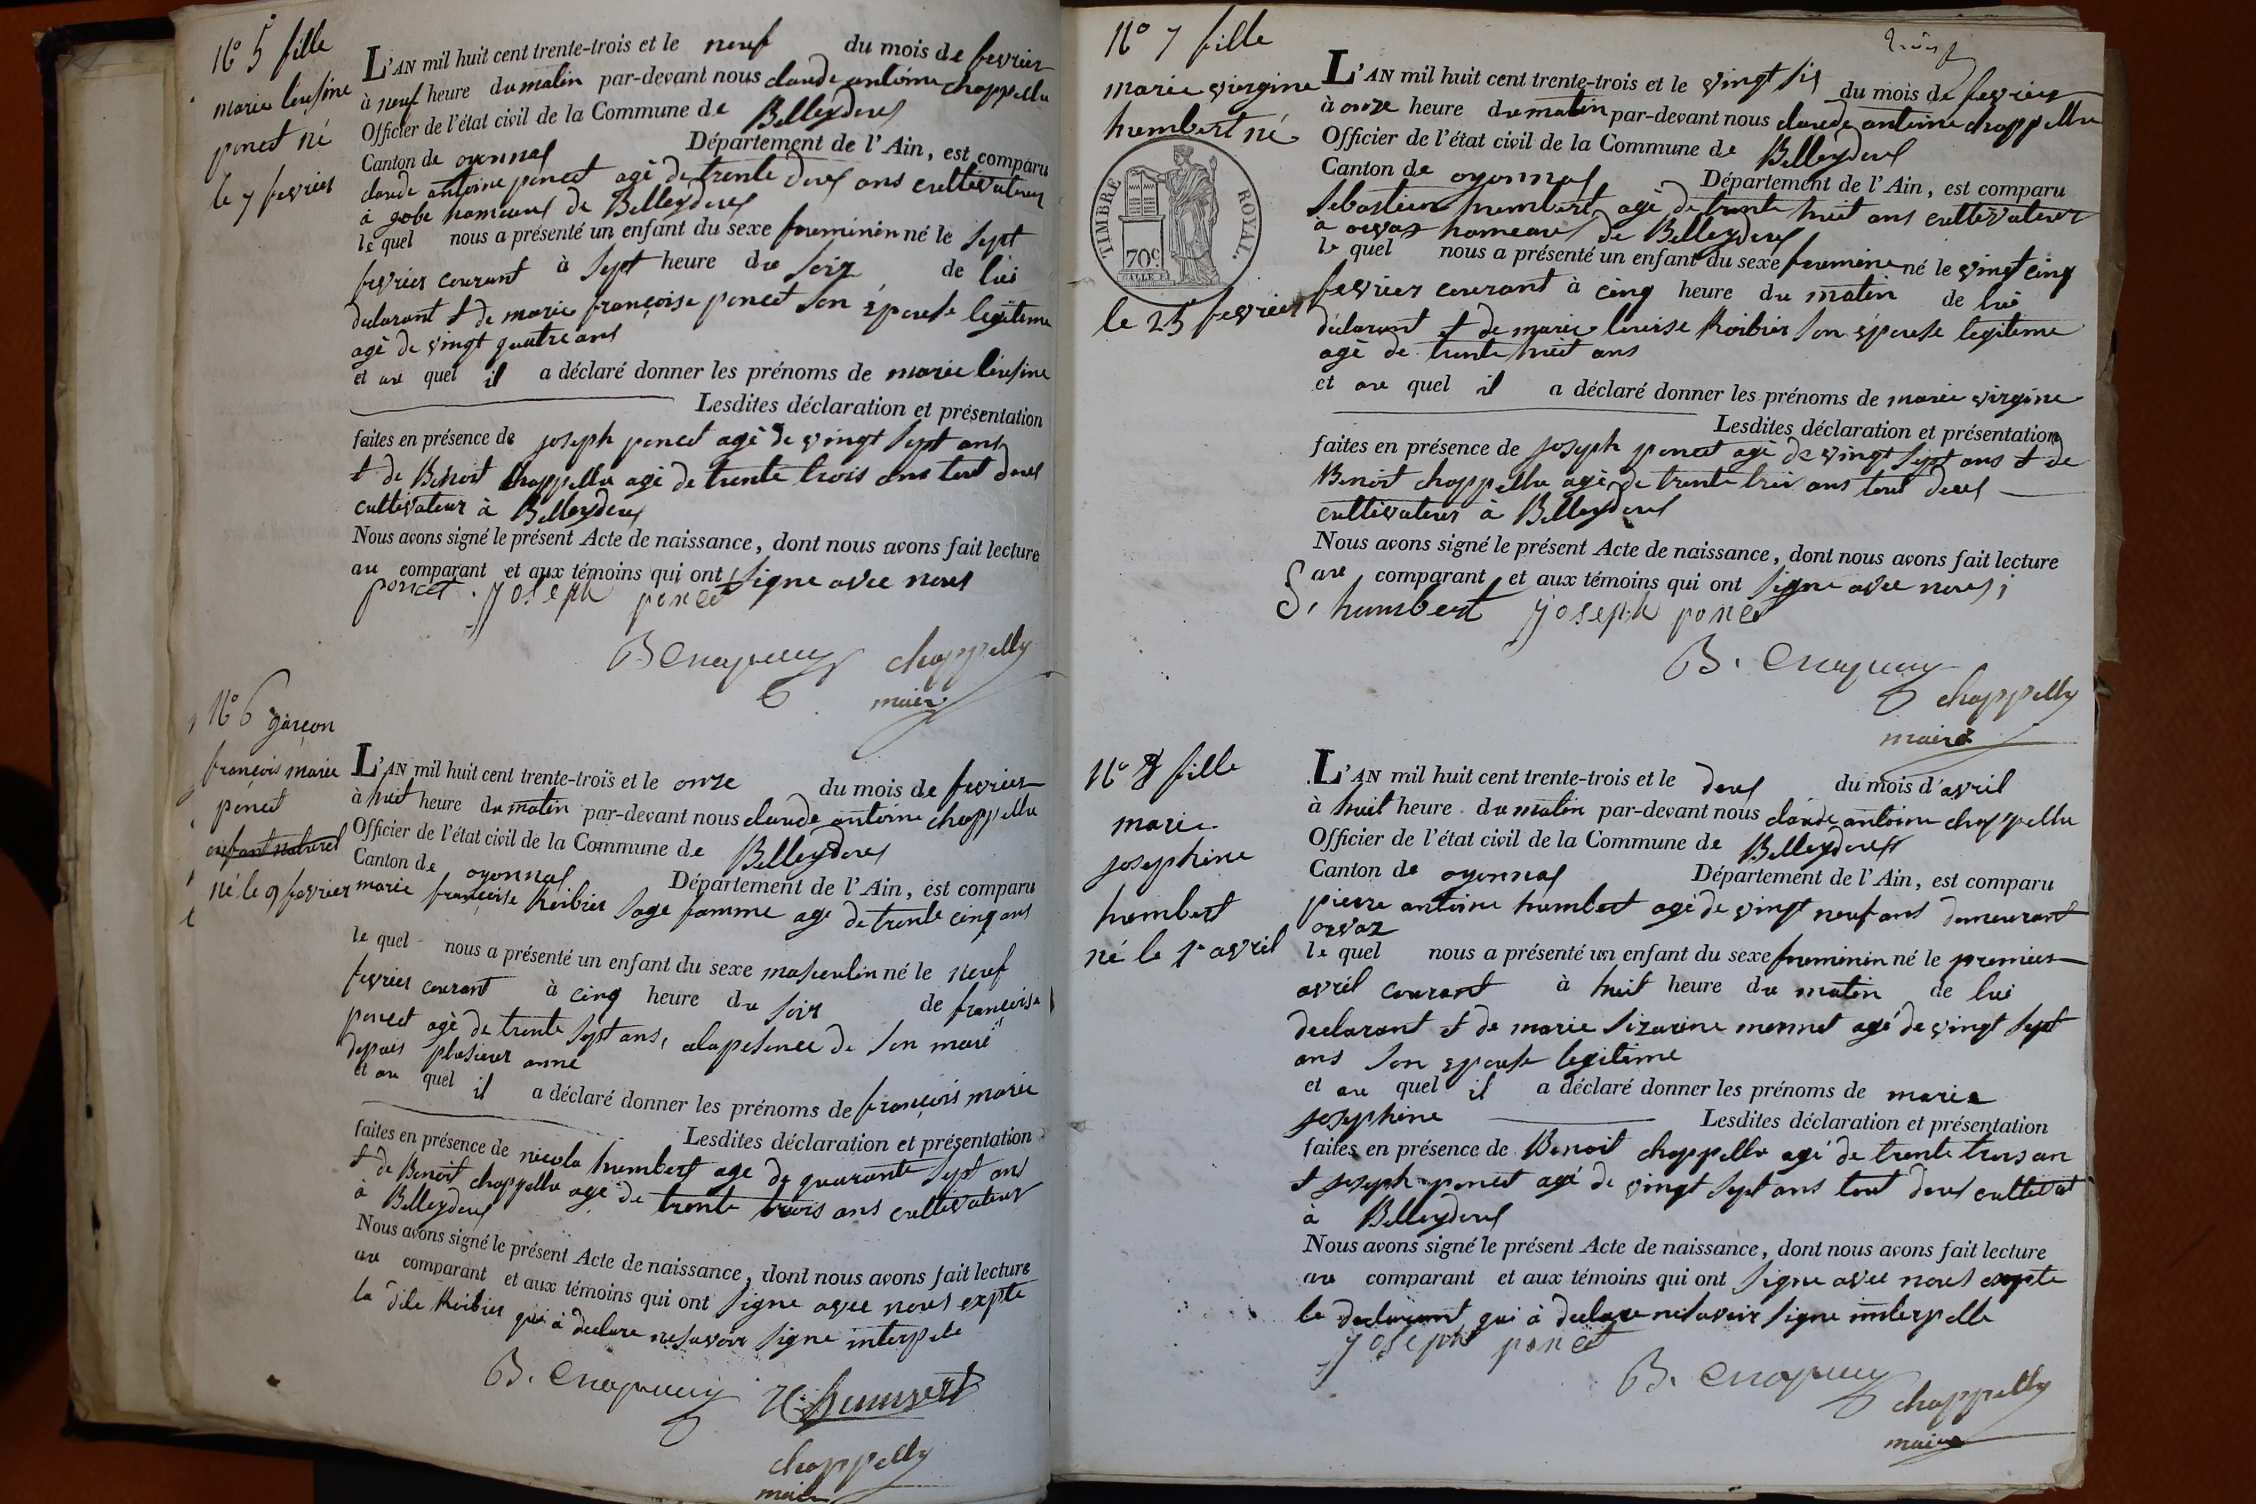 N° 5 fille
marie
poncet né
le 7 fevrier
L'AN mil huit cent trente-trois et le neuf du mois de fevrier
à neuf heure du matin par-devant nous claude antoine chappellu
Officier de l'état civil de la Commune de Belleydoux
Canton de oyonnax Département de l'Ain, est comparu
claude antoine poncet agé de trente deux ans cultivateur
à gobe hameaux de Belleydoux
le quel nous a présenté un enfant du sexe feminin né le sept
fevrier courant à sept heure du soir de lui
declarant & de marie françoise poncet son épouse legitime
agé de vingt quatre ans
et au quel il a déclaré donner les prénoms de marie
Lesdites déclaration et présentation
faites en présence de joseph poncet agé de vingt sept ans
& de Benoit chappellu agé de trente trois ans tout deux
cultivateur à Belleydoux
Nous avons signé le présent Acte de naissance, dont nous avons fait lecture
au comparant et aux témoins qui ont signe avec nous
poncet. joseph poncet
chappelly
maire
N° 6 garçon
françois marie
poncet
enfant naturel
né le 9 fevrier
L'AN mil huit cent trente-trois et le onze du mois de fevrier
à huit heure du matin par-devant nous claude antoine chappellu
Officier de l'état civil de la Commune de Belleydoux
Canton de oyonnax Département de l'Ain, est comparu
marie françoise Roibier sage famme age de trente cinq ans
le quel nous a présenté un enfant du sexe masculin né le neuf
fevrier courant à cinq heure du soir de françoise
poncet agé de trente sept ans, alapesence de son mari
depuis plusieur anné
et au quel il a déclaré donner les prénoms de françois marie
Lesdites déclaration et présentation
faites en présence de nicola humbert age de quarante sept ans
& de Benoit chappellu agé de trente trois ans cultivateur
à Belleydoux
Nous avons signé le présent Acte de naissance, dont nous avons fait lecture
au comparant et aux témoins qui ont signe avec nous expte
la dite Roibier qui à declare nesavoir signe interpele
humbert
chappelly
maire
N° 7 fille
marie virgine
humbert né
TIMBRE ROYAL.
70c
le 25 fevrier
L'AN mil huit cent trente-trois et le vingt six du mois de fevrier
à onze heure du matin par-devant nous claude antoine chappellu
Officier de l'état civil de la Commune de Belleydoux
Canton de oyonnax Département de l'Ain, est comparu
Sebastien humbert agé de trente huit ans cultivateur
à orvaz hameaux de Belleydoux
le quel nous a présenté un enfant du sexe feminine né le vingt cinq
fevrier courant à cinq heure du matin de lui
déclarant & de marie louise Roibier son épouse legitime
agé de trente huit ans
et au quel il a déclaré donner les prénoms de marie virgine
Lesdites déclaration et présentation
faites en présence de joseph poncet agé de vingt sept ans & de
Benoit chappellu agé de trente trois ans tout deux
cultivateur à Belleydoux
Nous avons signé le présent Acte de naissance, dont nous avons fait lecture
au comparant et aux témoins qui ont signe avec nous
S. humbert joseph poncet
chappelly
maire
N° 8 fille
marie
josephine
humbert
né le 1er avril
L'AN mil huit cent trente-trois et le deux du mois d'avril
à huit heure du matin par-devant nous claude antoine chappellu
Officier de l'état civil de la Commune de Belleydoux
Canton de oyonnax Département de l'Ain, est comparu
pierre antoine humbert agé de vingt neuf ans demeurant
orvaz
le quel nous a présenté un enfant du sexe feminin né le premier
avril courant à huit heure du matin de lui
declarant & de marie mermet agé de vingt sept
ans son epouse legitime
et au quel il a déclaré donner les prénoms de marie
josephine Lesdites déclaration et présentation
faites en présence de Benoit chappellu agé de trente trois an
& joseph poncet agé de vingt sept ans tout deux cultivat
à Belleydoux
Nous avons signé le présent Acte de naissance, dont nous avons fait lecture
au comparant et aux témoins qui ont signe avec nous expte
le declarant qui à declare nesavoir signe interpelle
joseph poncet
chappelly
maire